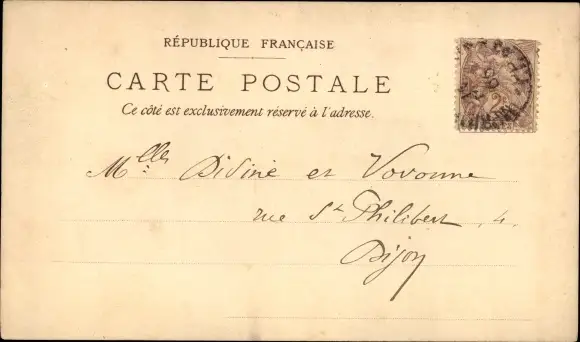 RÉPUBLIQUE FRANÇAISE
CARTE POSTALE
Ce côté est exclusivement réservé à l'adresse.
Melles Didine et Vovonne
rue St Philibert, 4.
Dijon